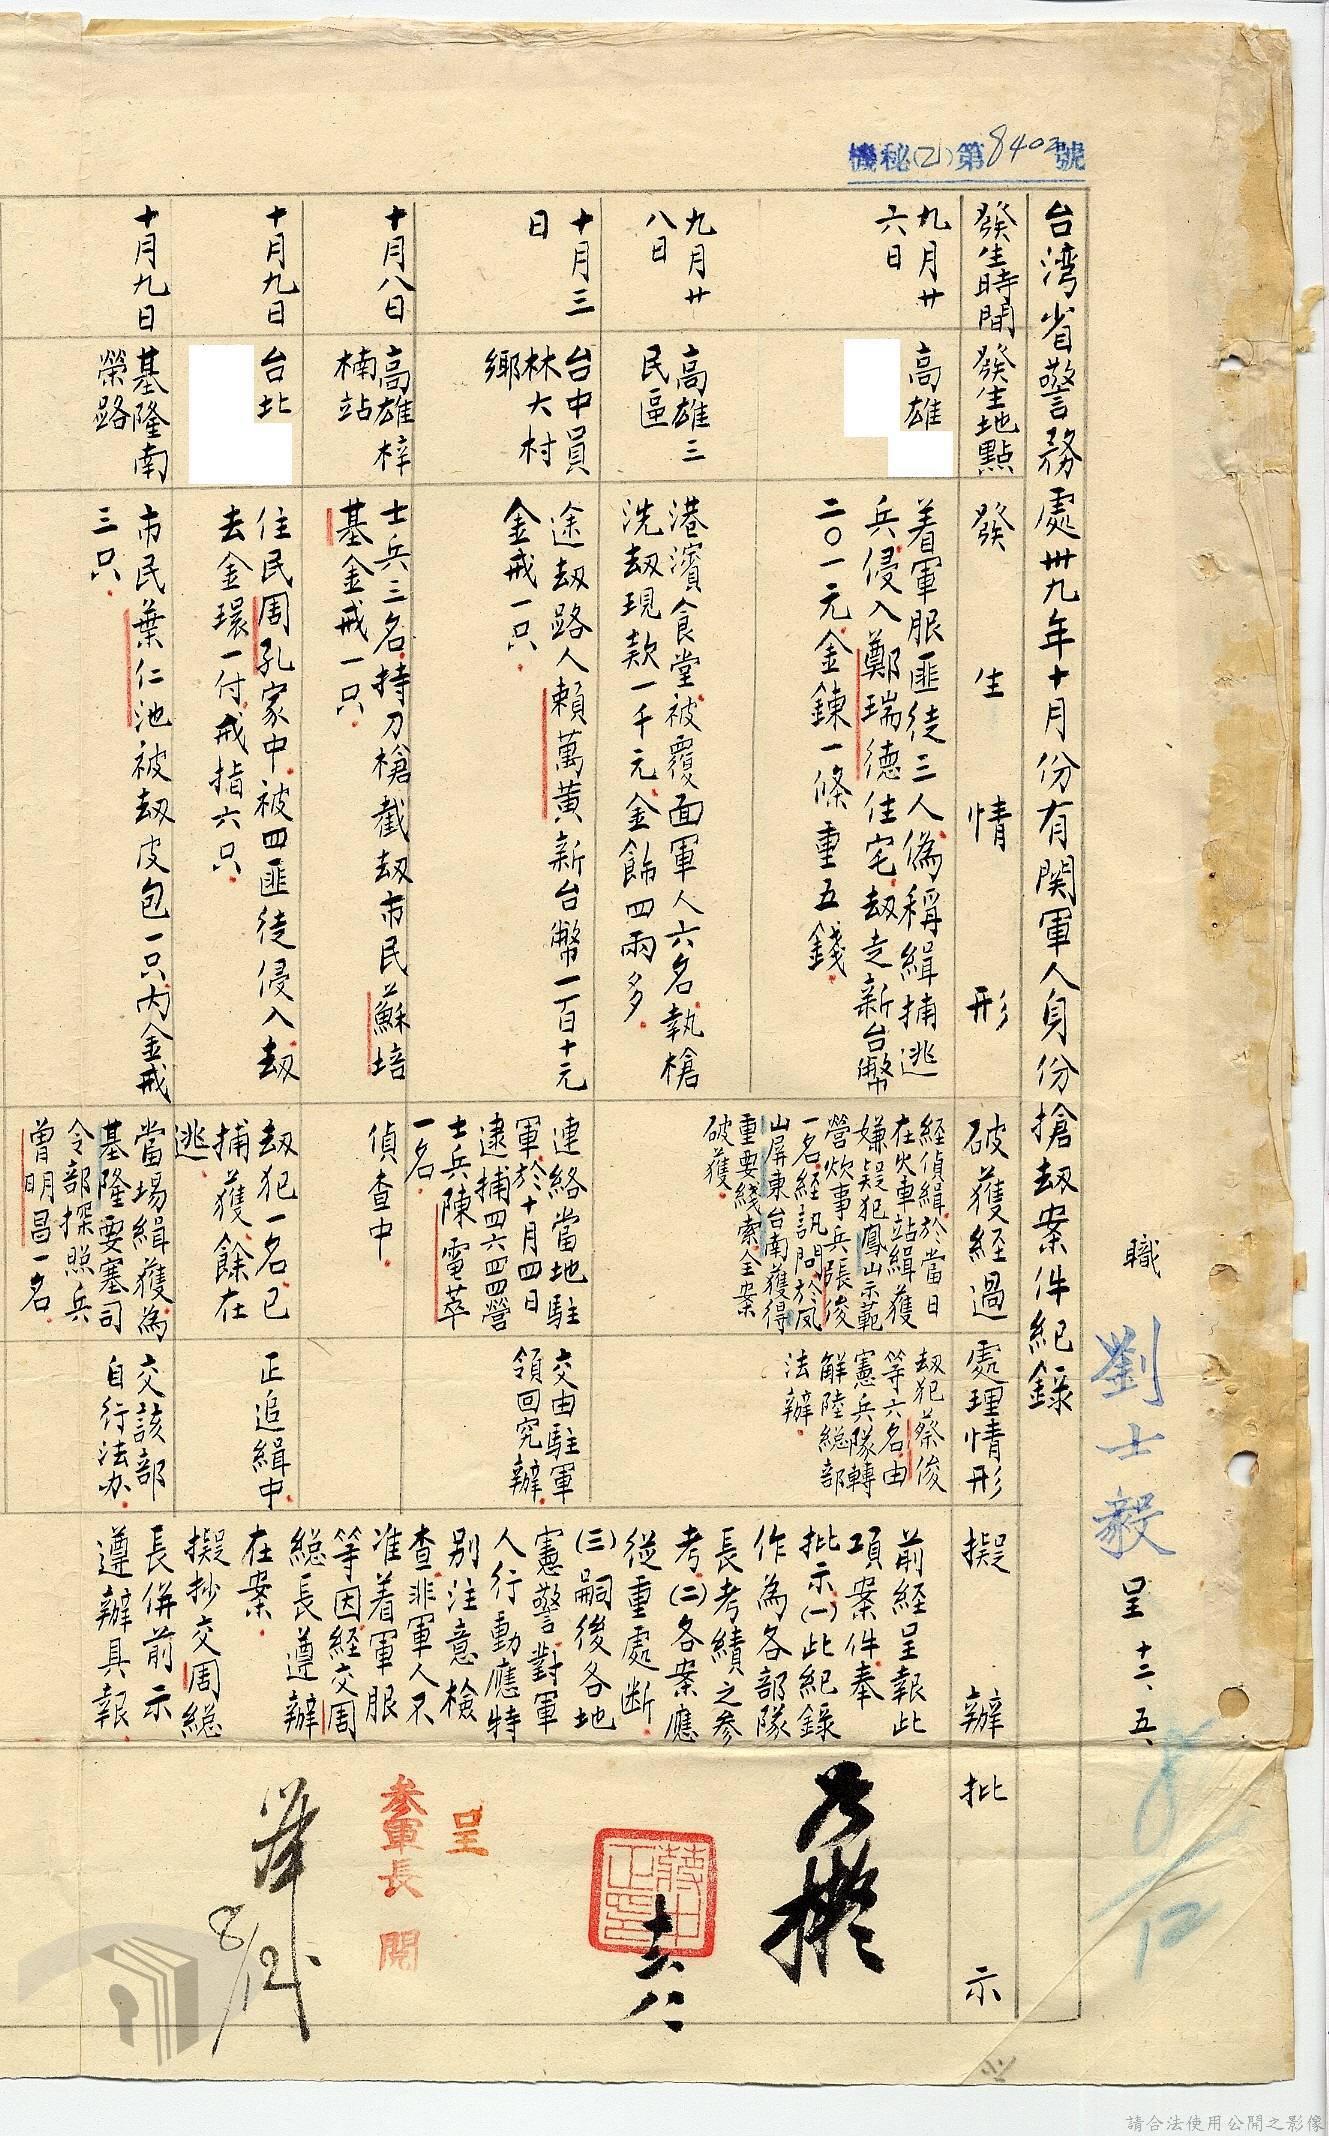 機秘(乙)第8402號
職 劉士毅 呈 十二、五、
8/12
台湾省警務處卅九年十月份有関軍人身份搶刼案件紀錄
發生時間
發生地點
發生情形
破獲経過
處理情形
擬辦
批示
九月廿
六日
高雄
着軍服匪徒三人偽稱緝捕逃
兵侵入鄭瑞德住宅刼走新台幣
二〇一元金鍊一條重五錢
経偵緝於當日
在火車站緝獲
嫌疑犯鳳山示範
營炊事兵張俊
一名経訊問於凤
山屏東台南獲得
重要綫索全案
破獲
刼犯蔡俊
等六名由
憲兵隊轉
解陸総部
法辦
九月廿
八日
高雄三
民區
港濱食堂被覆面軍人六名執槍
洗刼現款一千元金飾四兩多
十月三
日
台中員
林大村
鄉
途刼路人賴萬黄新台幣一百十元
金戒一只
連絡當地駐
軍於十月四日
逮捕四六四四營
士兵陳電萃
一名
交由駐軍
領回究辦
十月八日
高雄梓
楠站
士兵三名持刀槍截刼市民蘇培
基金戒一只
偵查中
十月九日
台北
住民周孔家中被四匪徒侵入刼
去金環一付戒指六只
刼犯一名已
捕獲餘在
逃
正追緝中
十月九日
基隆南
榮路
市民葉仁池被刼皮包一只內金戒
三只
當場緝獲為
基隆要塞司
令部探照兵
曾明昌一名
交該部
自行法办
前経呈報此
項案件奉
批示(一)此紀錄
作為各部隊
長考績之参
考(二)各案應
從重處断
(三)嗣後各地
憲警對軍
人行動應特
別注意檢
查非軍人不
准着軍服
等因経交周
総長遵辦
在案
擬抄交周総
長併前示
遵辦具報
如擬
十二八
呈
参軍長 閱
8/12
請合法使用公開之影像